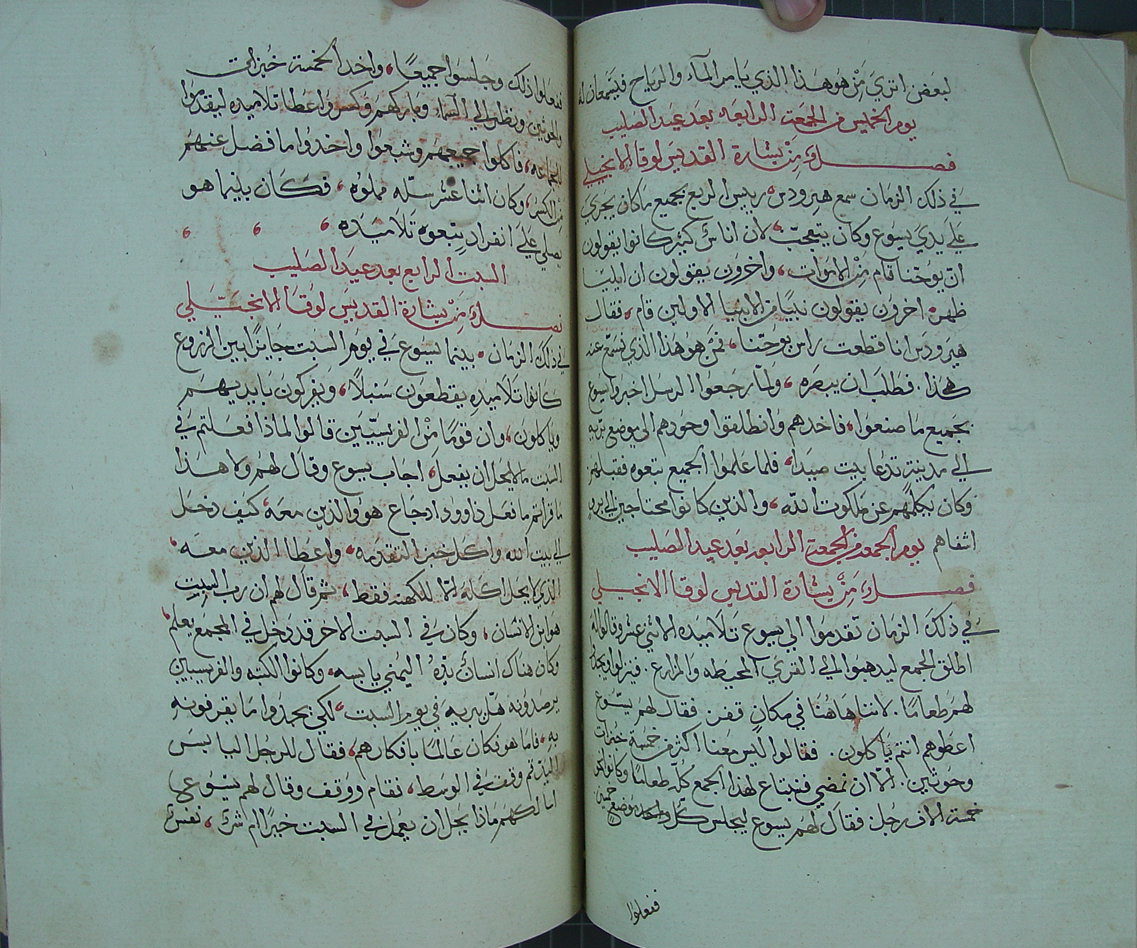 لبعض اتري من هو هذا الذي يامر المآء والرياح فيسمعان له
يوم الخميس من الجمعة الرابعه بعد عيد الصليب
فصل من بشارة القديس لوقا الانجيلي
في ذلك الزمان سمع هيرودس رييس الربع بجميع ماكان يجري
علي يدي يسوع وكان يتعجب لان اناس كثير كانوا يقولون
ان يوحنا قام من الاموات، واخرون يقولون ان ايليا
ظهر، اخرون يقولون نبيا من الانبيا الاولين قام، فقال
هيرودس انا قطعت راس يوحنا، فمن هو هذا الذي نسمع عنه
هكذا، فطلب ان يبصره، ولما رجعوا الرسل اخبروا يسوع
بجميع ما صنعوا، فاخدهم وانطلقوا وحدهم الي موضع بريه
الي مدينة تدعا بيت صيدا، فلما علموا الجميع تبعوه فقبلهم
وكان يكلمهم عن ملكوت الله، والذين كانوا محتاجين الي
اشفاهم يوم الجمعه من الجمعة الرابعه بعد عيد الصليب
فصل من بشارة القديس لوقا الانجيلي
في ذلك الزمان تقدموا الي يسوع تلاميده الاثني عشر وقالوا له
اطلق الجمع ليدهبوا الي القري المحيطه والمزارع. فينزلوا ويجدوا
لهم طعاما. لاننا هاهنا في مكان قفر. فقال لهم يسوع
اعطوهم انتم ياكلون. فقالوا ليس معنا اكثر من خمسة خبزات
وحوتين. الا ان نمضي فنبتاع لهذا الجمع كله طعاما وكانوا
خمسة الاف رجل فقال لهم يسوع ليجلس كل واحد موضع خمسين
ففعلوا
ففعلوا ذلك وجلسوا جميعا، واخد الخمسة خبزات
والحوتين ونظر الي السماء وباركهم وكسر واعطا تلاميده ليقدموا
للجماعه، فاكلوا جميعهم وشبعوا واخدوا ما فضل عنهم
من الكسر، وكان اثنا عشر سله مملوه، فكان بينما هو
يصلي علي انفراد يتبعوه تلاميده،
السبت الرابع بعد عيد الصليب
فصل من بشارة القديس لوقا الانجيلي
في ذلك الزمان. بينما يسوع في يوم السبت جايزا بين الزروع
كانوا تلاميده يقطعون سنبلا، ويفركون بايديهم
وياكلون، وان قوما من الفريسيين قالوا لماذا فعلتم في
السبت ما لا يحل ان يفعل، اجاب يسوع وقال لهم ولا هذا
ما قراتم ما فعل داوود اد جاع هو والذين معه، كيف دخل
الي بيت الله واكل خبز التقدمه، واعطا الذين معه،
الذي لا يحل اكله الا للكهنه فقط، ثم قال لهم ان رب السبت
هو ابن الانسان، وكان في السبت الاخر قد دخل في المجمع يعلم،
وكان هناك انسان يده اليمني يابسه، وكانوا الكتبه والفريسيين
يرصدونه هل يبريه في يوم السبت، لكي يجدوا ما يقرفونه
به، فاما هو فكان عالما بافكارهم، فقال للرجل اليابس
اليد قم وقف في الوسط، فقام ووقف وقال لهم يسوع
انا لكم ماذا يحل ان يعمل في السبت خيرا ام شر، نفس